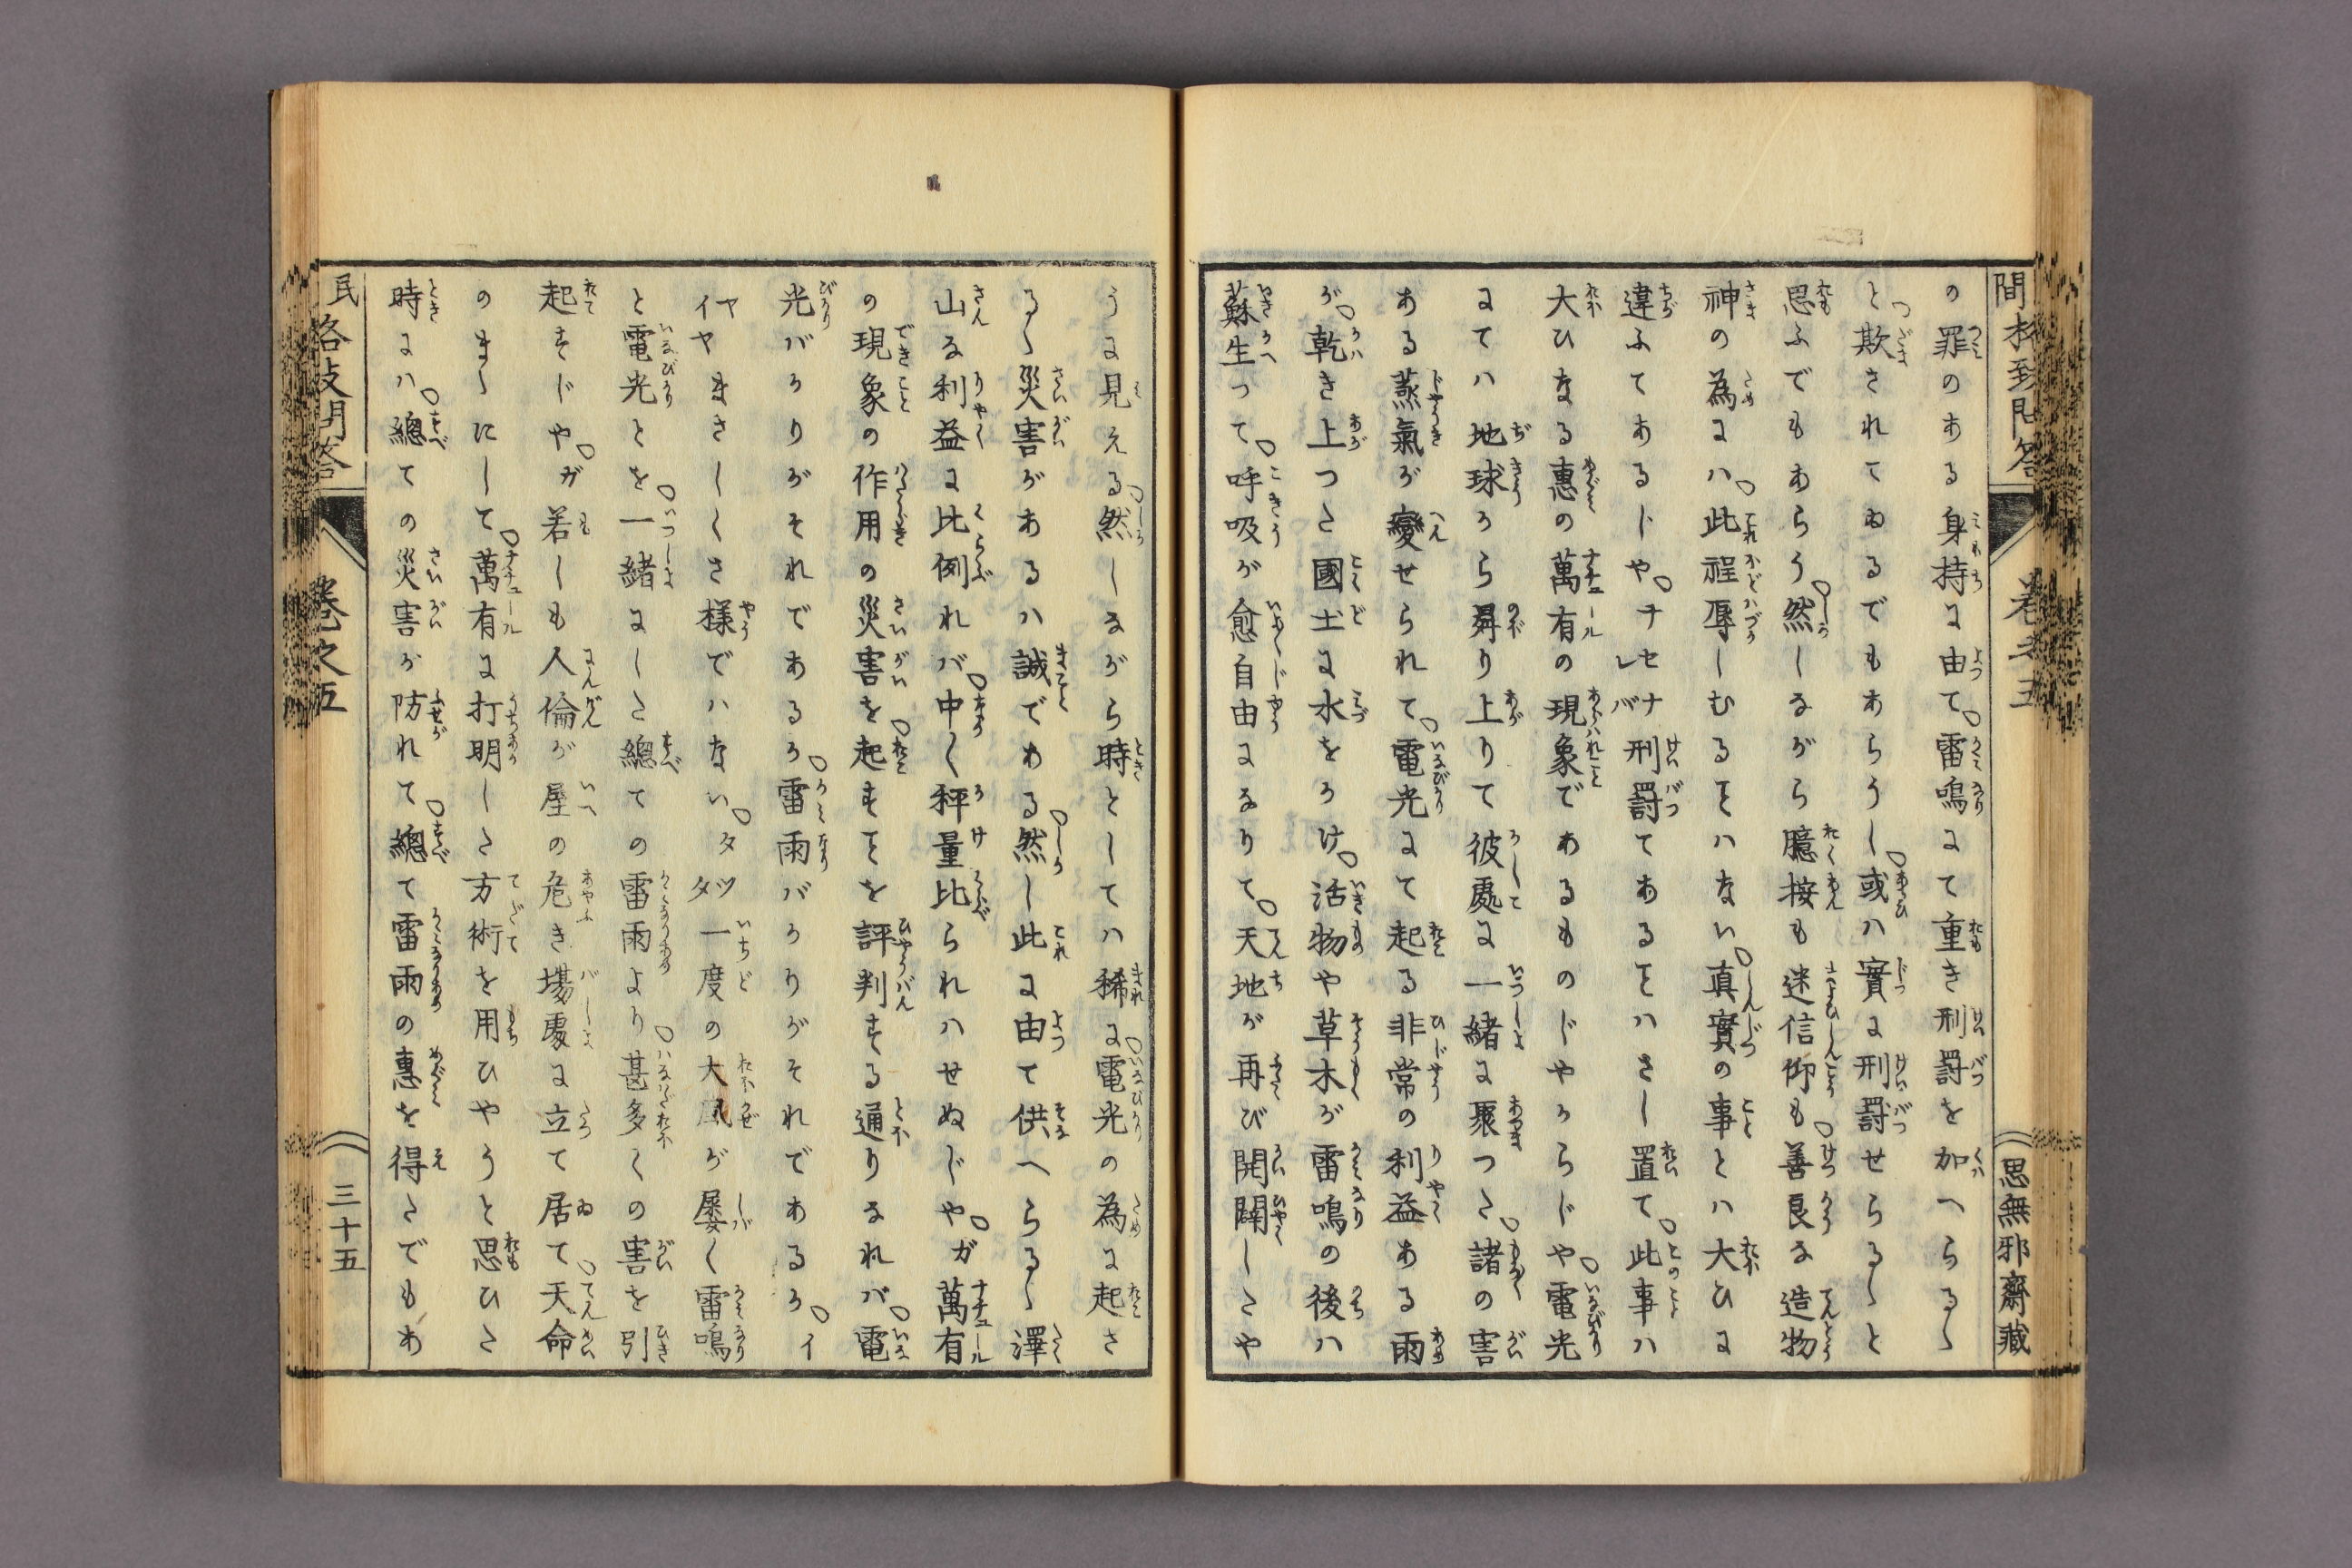 間格致問答 卷之五 思無邪齋藏
の罪のある身持に由て。雷鳴にて重き刑罰を加へらるゝ
と欺されてゐるでもあらうし。或ハ實に刑罰せらるゝと
思ふでもあらう。然しながら臆按も迷信仰も。善良な造物
神の為にハ。此程辱しむるヿハない。真實の事とハ大ひに
違ふてあるじや。ナセナレバ刑罰てあるヿハさし置て。此事ハ
大ひなる惠の萬有の現象であるものじやからじや。電光
にてハ地球から昇り上りて彼處に一緒に聚つた。諸の害
ある蒸氣が變せられて。電光にて起る非常の利益ある雨
が。乾き上つた國土に水をかけ。活物や草木が雷鳴の後ハ
蘇生つて。呼吸が愈自由になりて。天地が再び開闢したや
うに見える。然しながら時としてハ稀に。電光の為に起さ
るゝ災害があるハ誠である。然し此に由て供へらるゝ澤
山な利益に比例れバ。中く秤量比られハせぬじや。ガ萬有
の現象の作用の災害を。起すヿを評判する通りなれバ。電
光バかりがそれであるか。雷雨バかりがそれであるか。イ
ヤイヤまさしくさ様でハない。タッタ一度の大風が屡く雷鳴
と電光とを。一緒にした總ての雷雨より。甚多くの害を引
起すじや。ガ若しも人倫が屋の危き塲處に立て居て。天命
のまゝにして。萬有に打明した方術を用ひやうと思ひた
時にハ。總ての災害が防れて。總て雷雨の惠を得たでもあ
民格致問答 卷之五 三十五